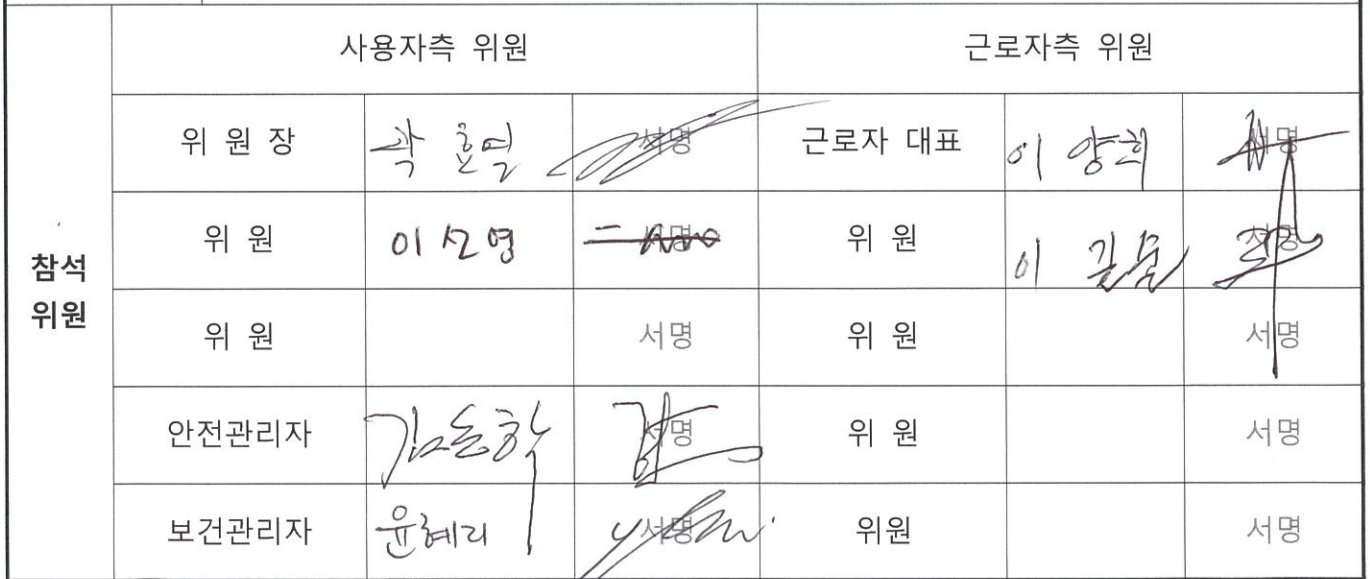 사용자측 위원 근로자측 위원
위 원 장 곽호열 서명 근로자 대표 이양희 서명
위 원 이신영 서명 위 원 이길웅 서명
참석
위원
위 원 서명 위 원 서명
안전관리자 김동학 서명 위 원 서명
보건관리자 윤혜리 서명 위원 서명